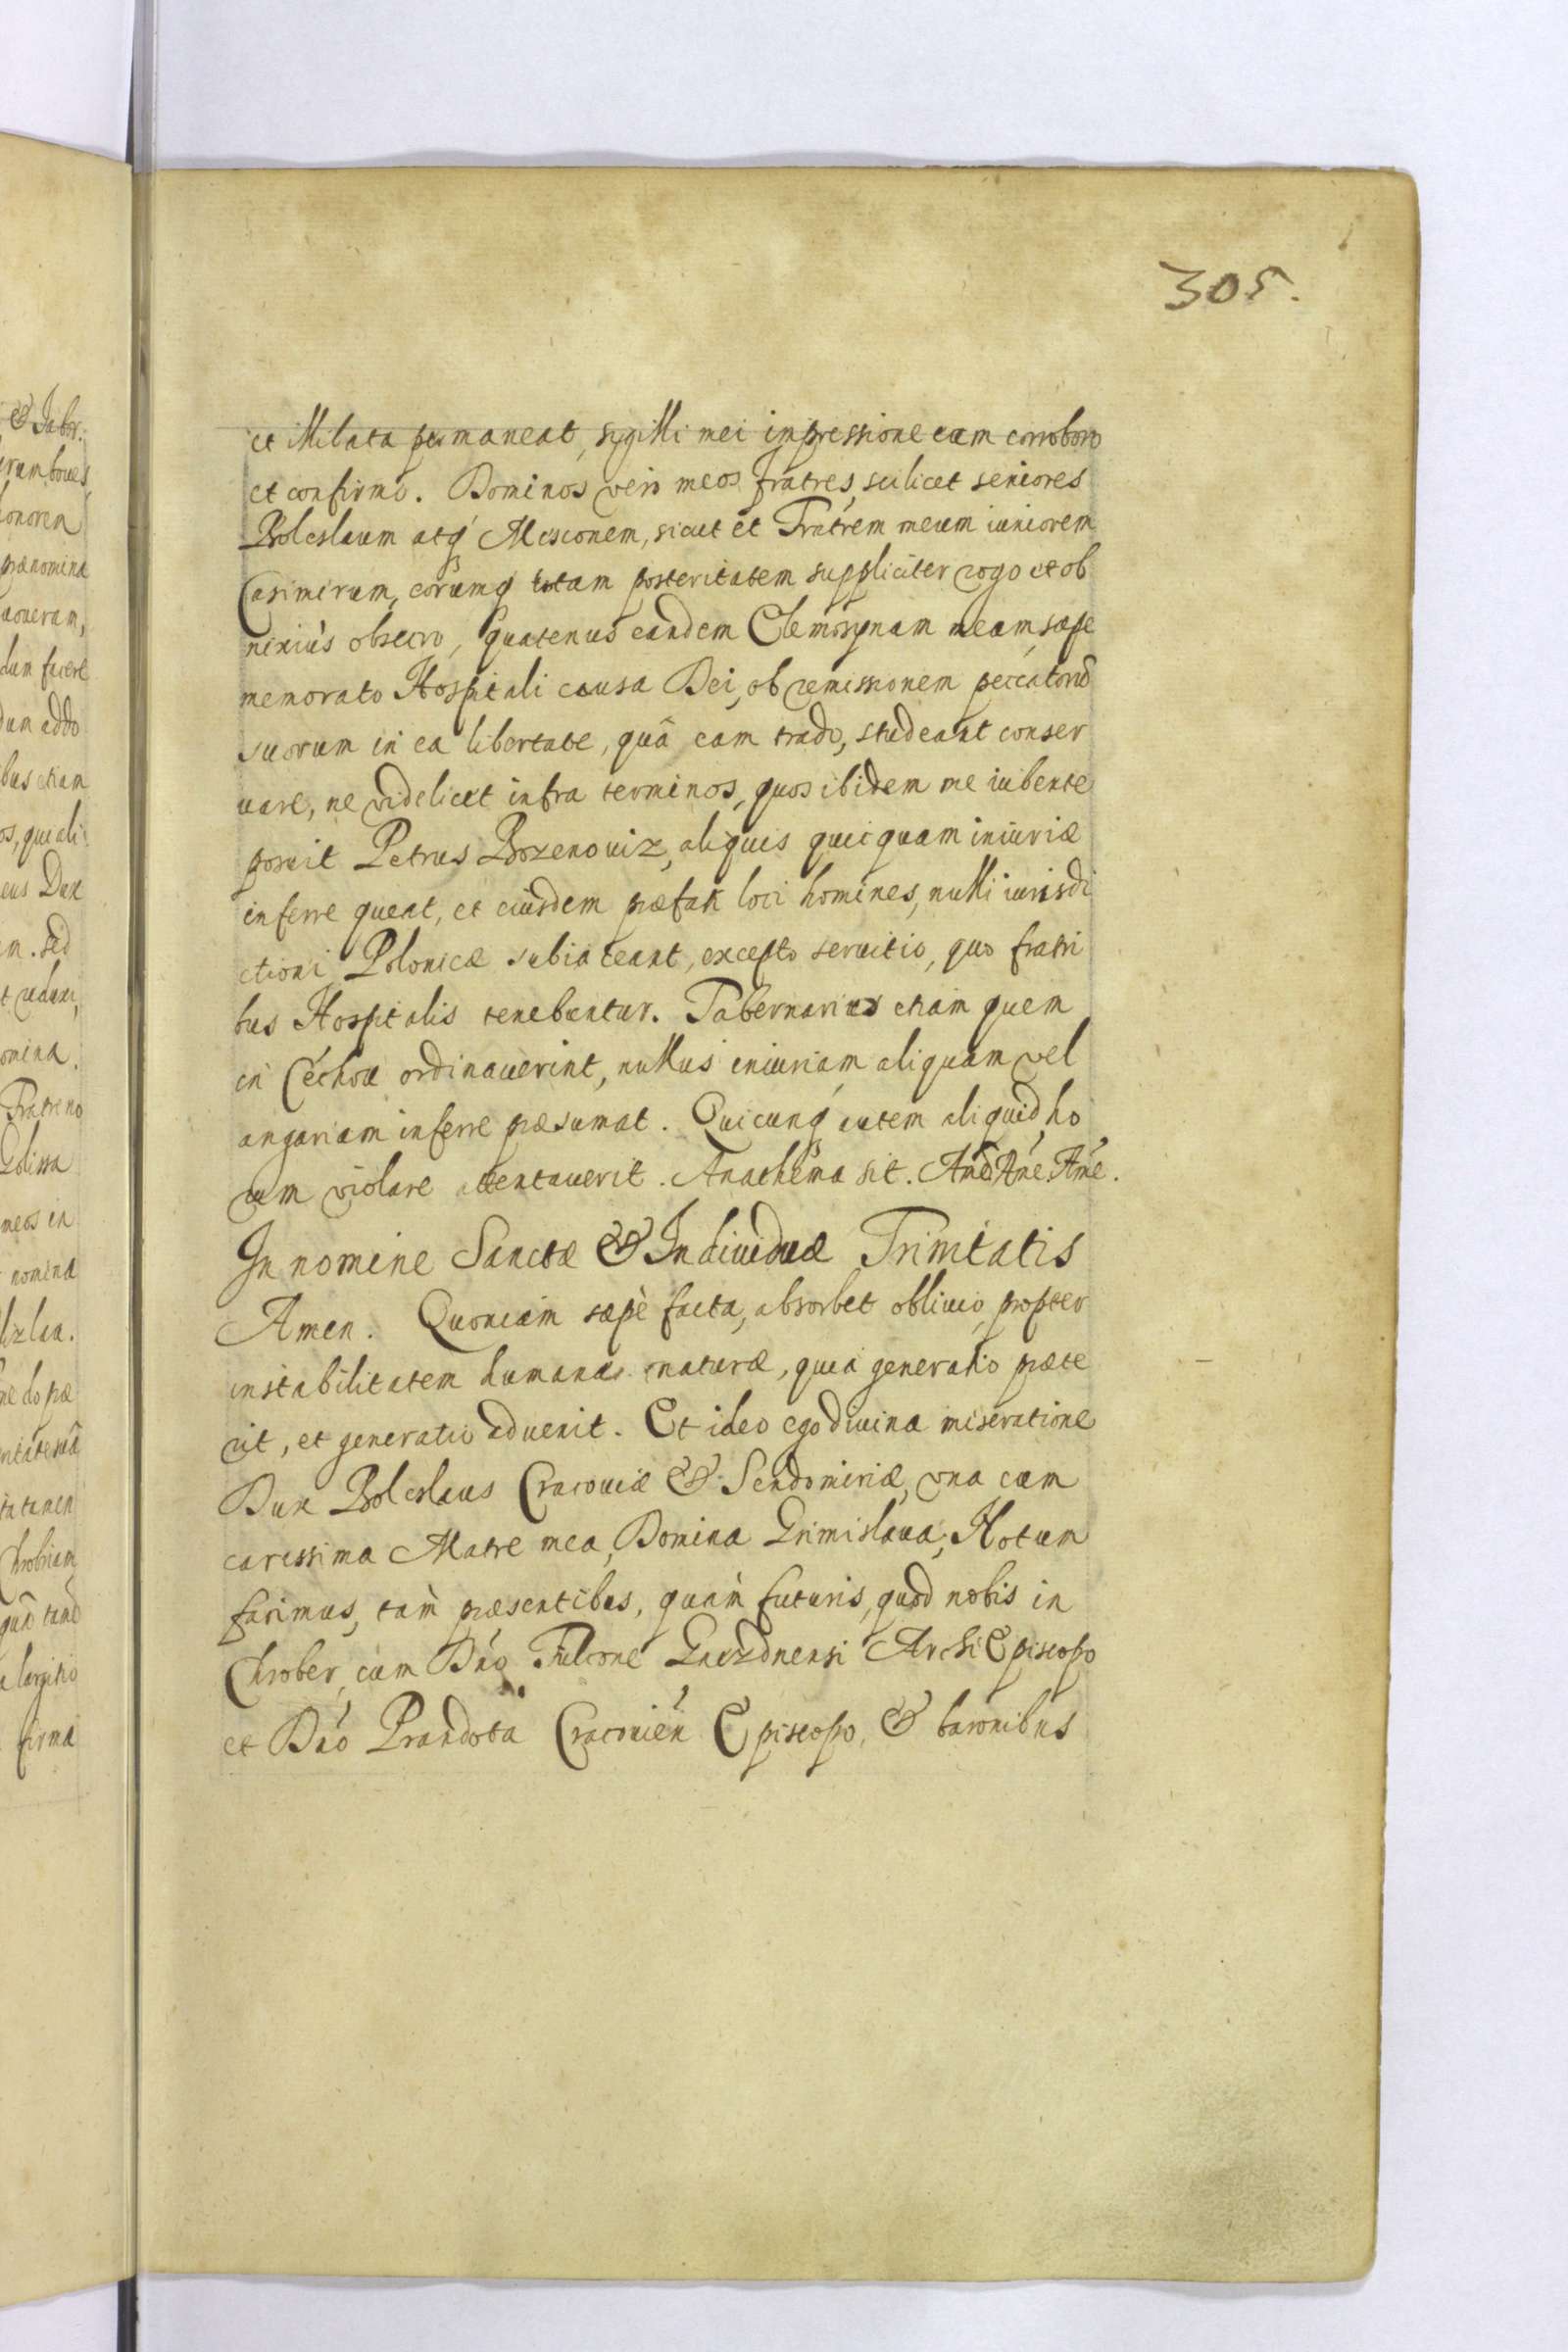 305.
et illibata permaneat, sigilli mei inpressione eam corroboro
et confirmo. Dominos vero meos fratres, scilicet seniores
Boleslaum atq́ Mesconem, sicut et Fratrem meum iuniorem
Casimirum, eorumq́ totam posteritatem suppliciter rogo et ob
nixius obsecro, Quatenus eandem Elemosynam meam, sæpe
memorato Hospitali causa Dei, ob remissionem peccatorũ
suorum in ea libertate, quâ eam trado, studeant conser
uare, ne videlicet infra terminos, quos ibidem me iubente
posuit Petrus Bozenouiz, aliquis quicquam iniuriæ
inferre queat, et eiusdem præfati loci homines, nulli iurisdi
ctioni Polonicæ subiaceant, excepto seruitio, quo fratri
bus Hospitalis tenebuntur. Tabernarius etiam quem
in Cechou ordinauerint, nullus iniuriam aliquam vel
angariam inferre præsumat. Quicunq́ autem aliquid ho
rum violare attentauerit. Anathema sit. Amẽ Amẽ Amẽ.
In nomine Sanctæ & Indiuiduæ Trinitatis
Amen. Quoniam sæpè facta, absorbet obliuio, propter
instabilitatem humanæ naturæ, quia generatio præte
rit, et generatio aduenit. Et ideo ego diuina miseratione
Dux Boleslaus Cracouiæ & Sendomiriæ, vna cum
carissima Matre mea, Domina Grimislaua, Notum
facimus, tam̀ præsentibus, quam̀ futuris, quod nobis in
Chrober, cum Dńo Fulcone Gnezdnensi Archi Episcopo
et Dńo Prandota Cracouień Episcopo, & baronibus
& Jabor.
erum boues
honorem
prænomina
dum facere
dum addo
bus etiam
os, qui ali
eus Dux
m. sed
omina.
meos in
nomina
firma